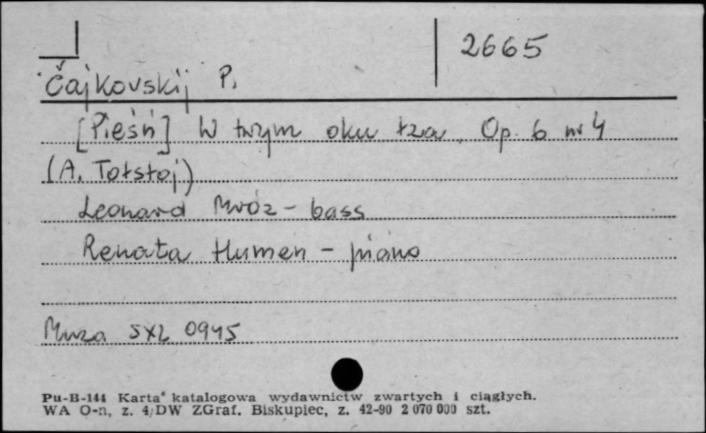 2665
Čajkovskij P.
[Pieśń] W twym oku łza. Op. 6 nr 4
(A. Tołstoj)
Leonard Mróz - bass
Renata Humen - piano
Muza SXL 0945
Pu-B-144 Karta katalogowa wydawnictw zwartych i ciągłych.
WA O-n, z. 4/DW ZGraf. Biskupiec, z. 42-90 2 070 000 szt.